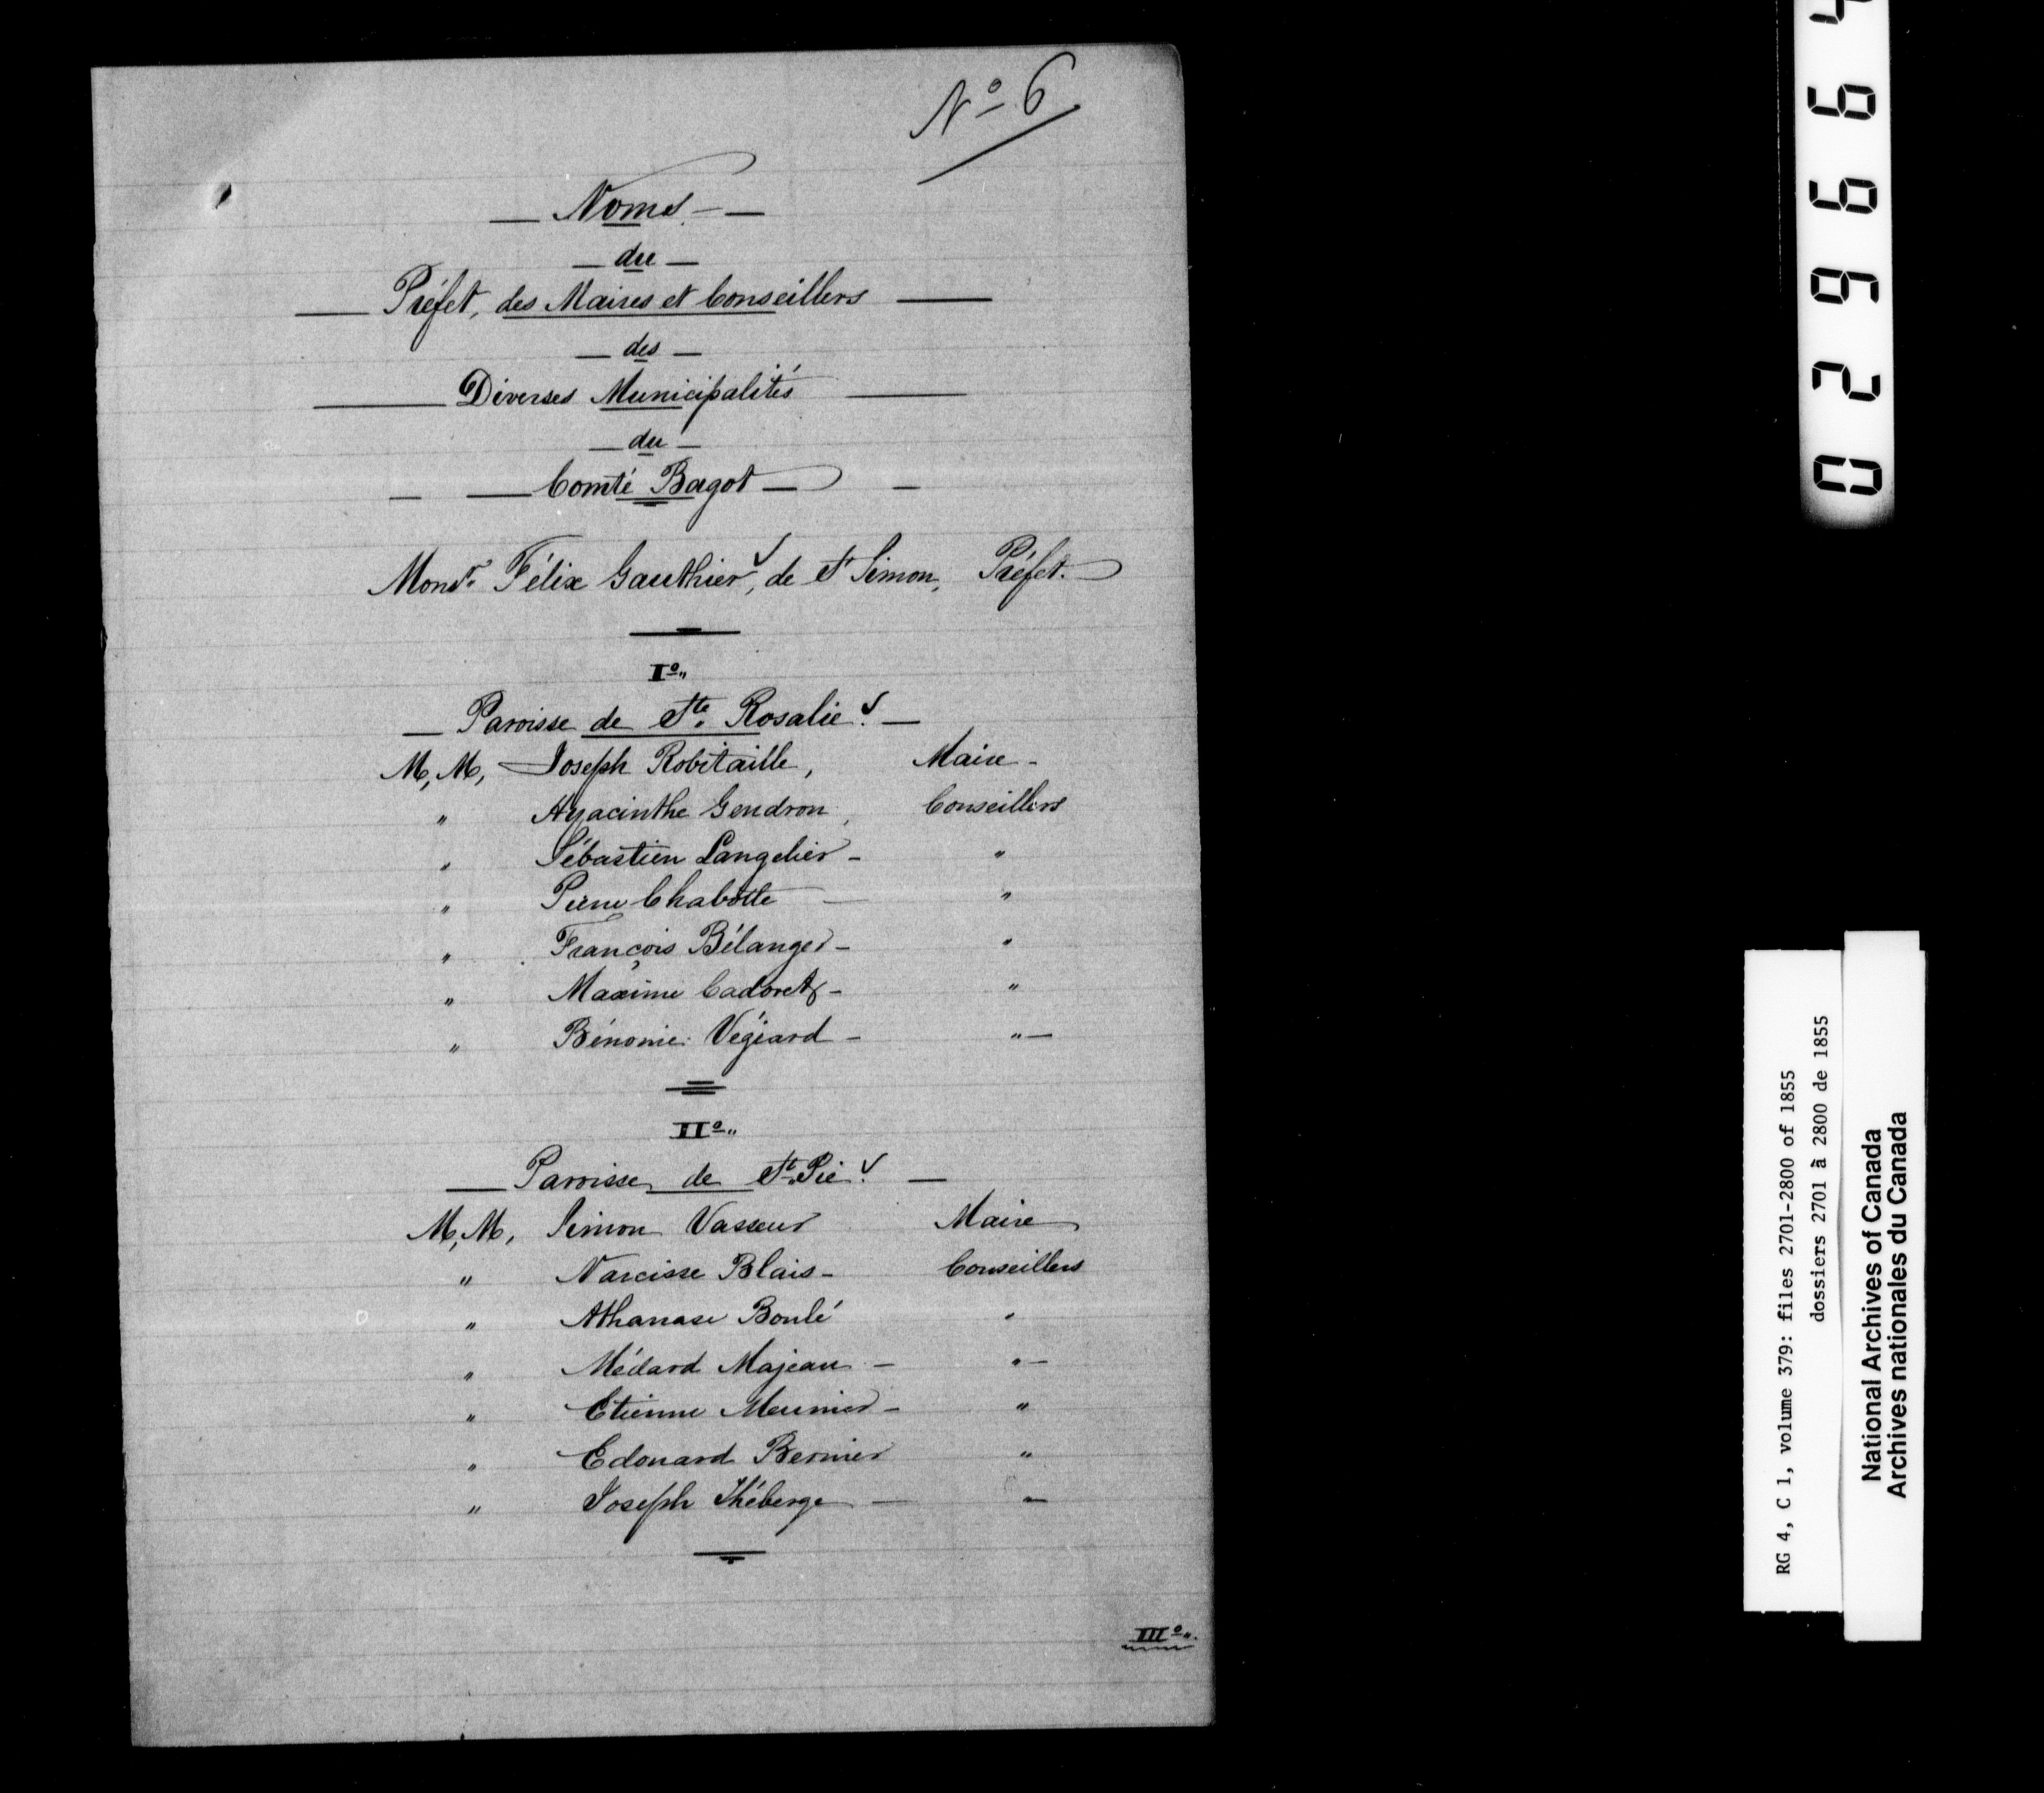 No 6
Noms
du
Préfet, des Maires et Conseillers
des
Diverses Municipalités
du
Comté Bagot
Monsr. Félix Gauthier, de St Simon, Préfet.
Io"
Paroisse de Ste. Rosalie.
M,M, Joseph Robitaille, Maire -
" Hyacinthe Gendron, Conseillers
" Sébastien Langelier - "
" Pierre Chabotte - "
" François Bélanger - "
" Maxime Cadoret - "
" Bénonie Végiard - " -
IIo"
Paroisse de St. Pie.
M,M, Simon Vasseur Maire
" Narcisse Blais - Conseillers
" Athanase Boulé "
" Médard Majeau - " -
" Etienne Meunier - "
" Edouard Bernier "
" Joseph Théberge - "
IIIo".
029664
RG 4, C 1, volume 379: files 2701-2800 of 1855
dossiers 2701 à 2800 de 1855
National Archives of Canada
Archives nationales du Canada